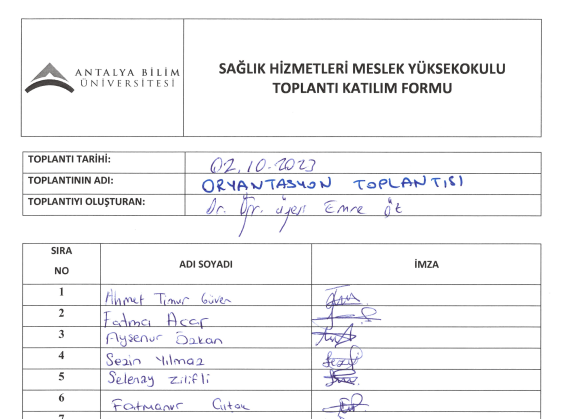 ANTALYA BİLİM
ÜNİVERSİTESİ
SAĞLIK HİZMETLERİ MESLEK YÜKSEKOKULU
TOPLANTI KATILIM FORMU
TOPLANTI TARİHİ: 02.10.2023
TOPLANTININ ADI: ORYANTASYON TOPLANTISI
TOPLANTIYI OLUŞTURAN: Dr. Öğr. üyesi Emre Öt
SIRA NO ADI SOYADI İMZA
1 Ahmet Timur Güven
2 Fatma Acar
3 Ayşenur Özkan
4 Sezin Yılmaz
5 Selenay Zilifli
6 Fatmanur
7